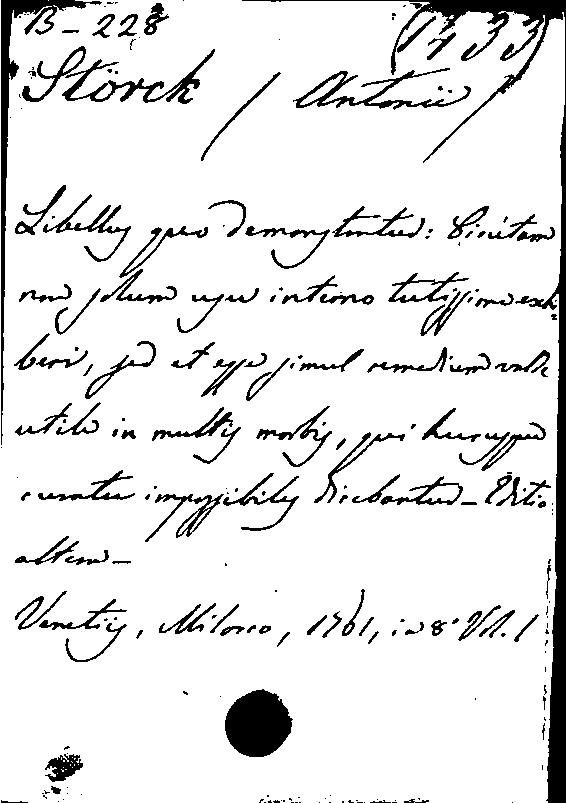 B - 228 (1433)
Störck / Antonii /
Libellus quo demonstratur: Cicutam
non solum usu interno tutissime exhi=
beri, sed et esse simul remedium valde
utile in multis morbis, qui hucusque
curatu impossibiles dicebantur - Editio
altera -
Venetiis, Milocco, 1761, in 8° Vol. 1